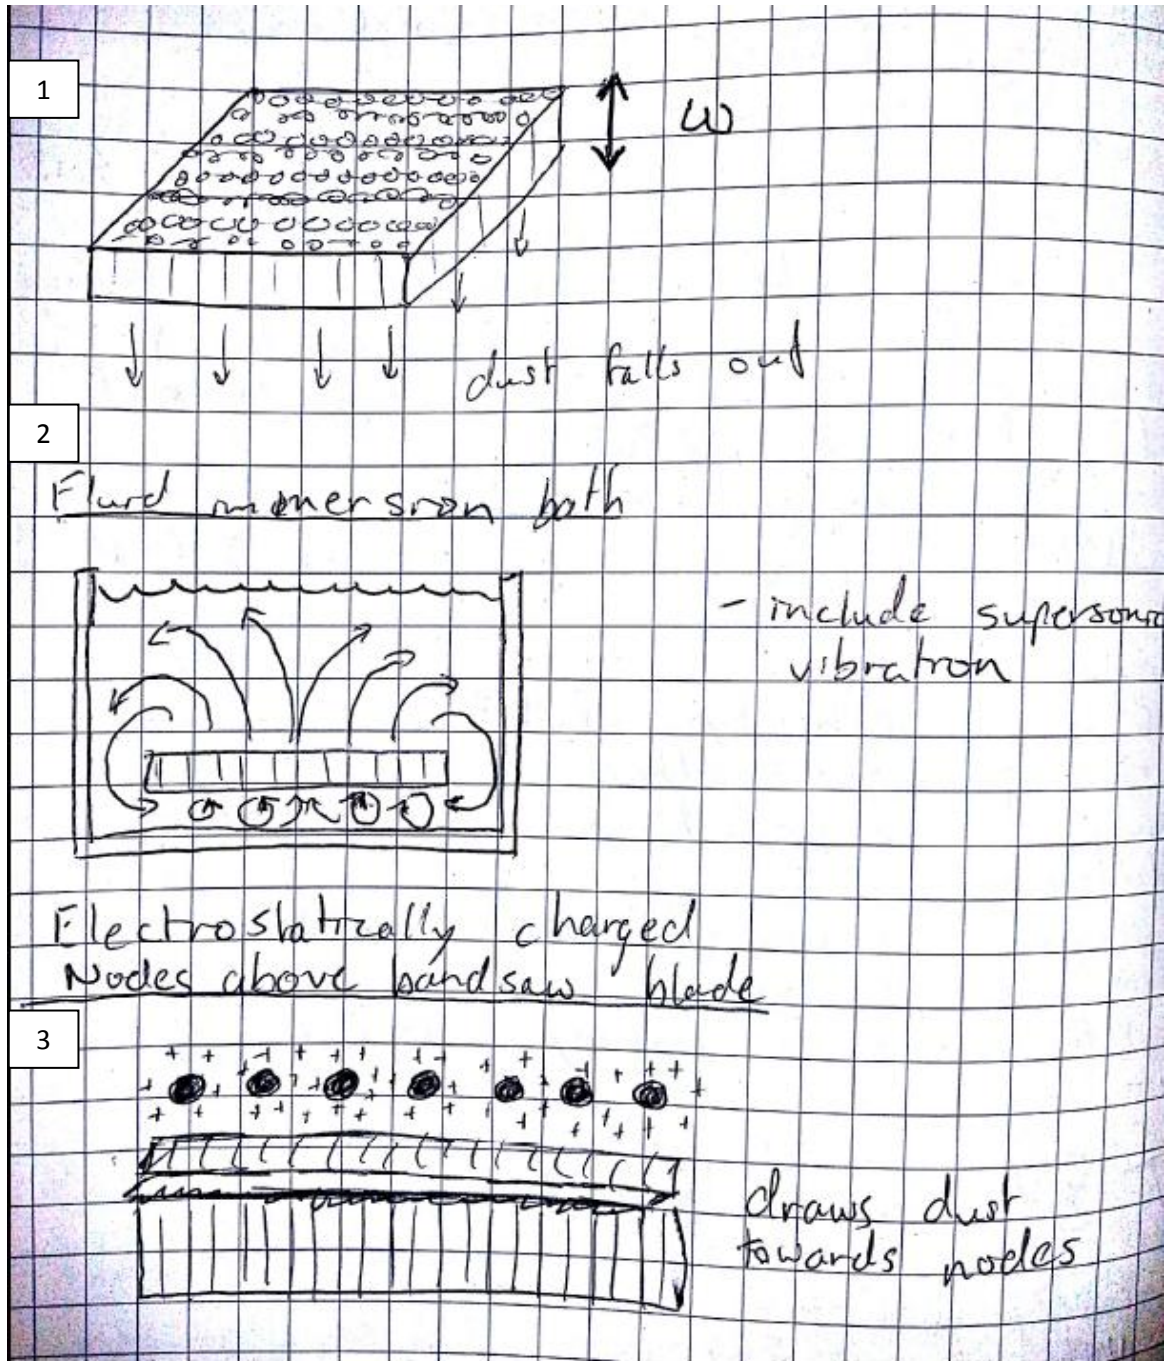 1
ω
dust falls out
2
Fluid immersion bath
- include supersonic
vibration
Electrostatically charged
Nodes above bandsaw blade
3
+ + + + + + + + + +
draws dust
towards nodes